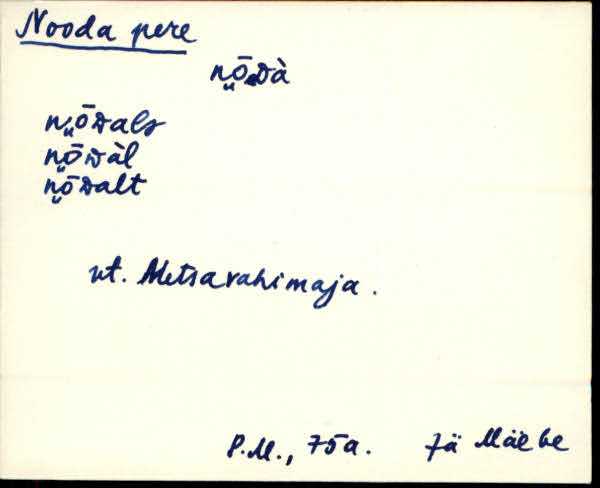 Nooda pere
n̬ōᴅà
n̬ōᴅals
n̬ōᴅàl
n̬ōᴅalt
vt. Metsavahimaja.
P.M., 75a. Jä Mäebe